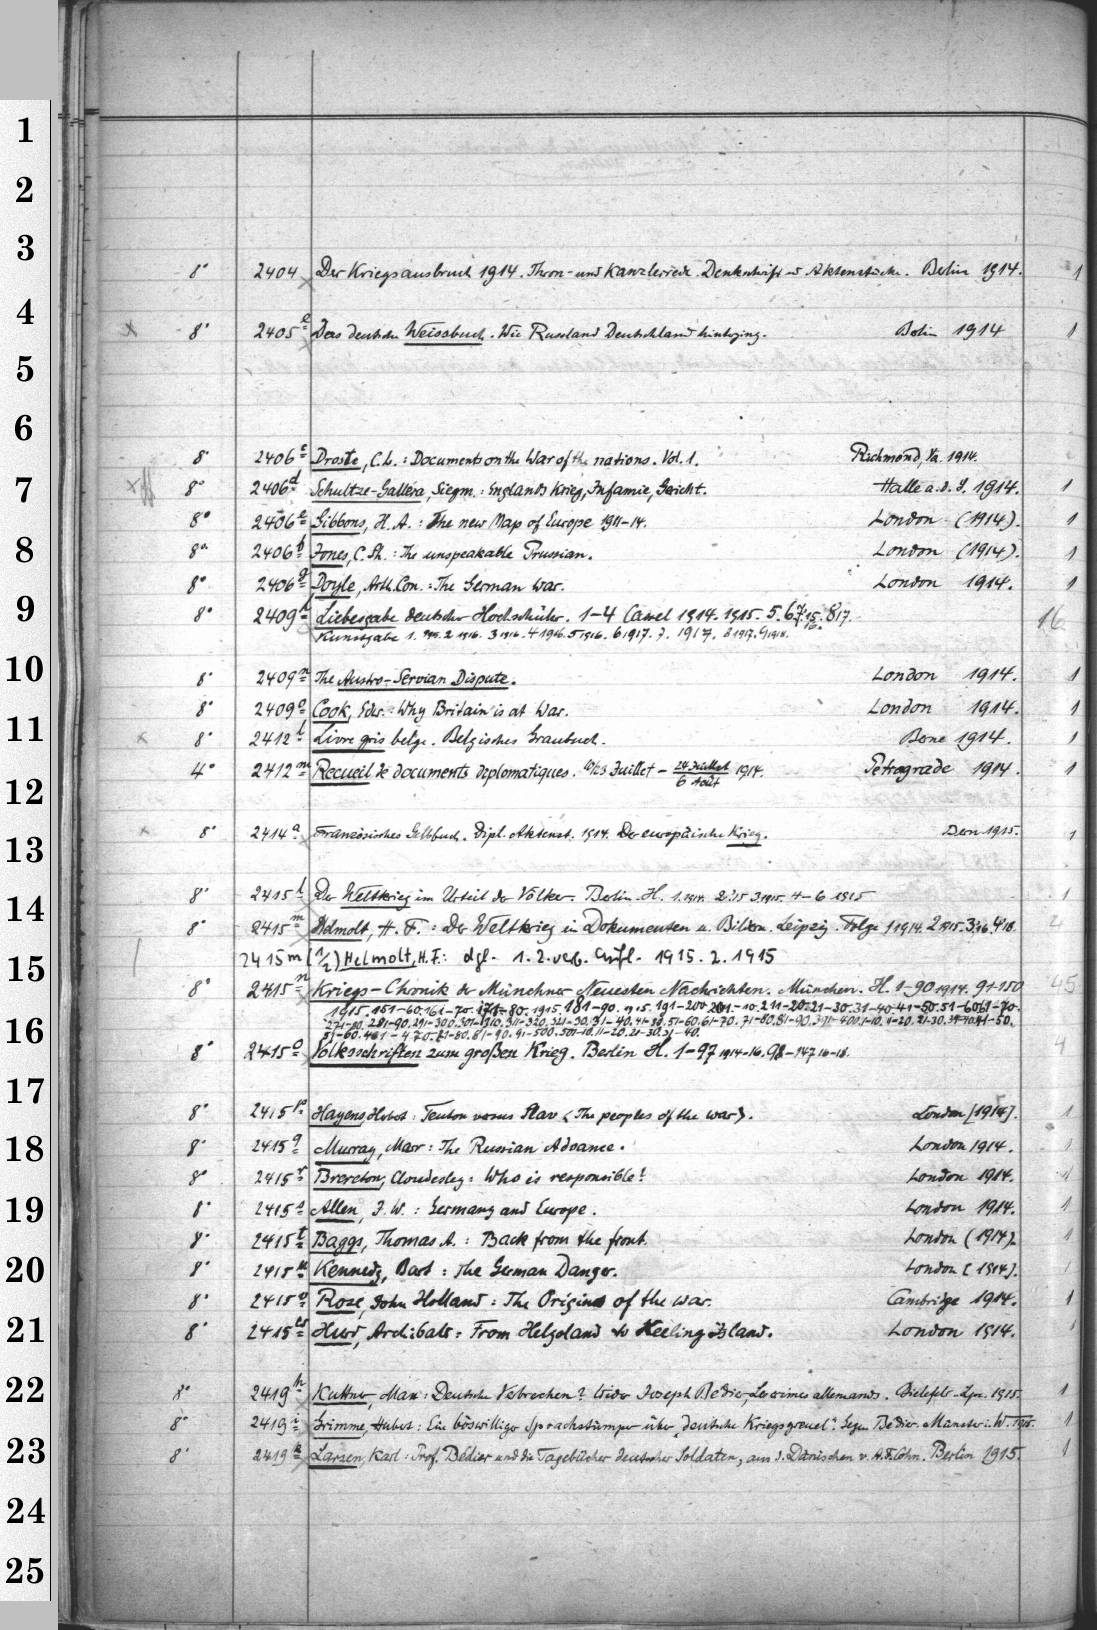 1
2
3
8° 2404 Der Kriegsausbruch 1914. Thron- und Kanzlerrede. Denkschrift u. Aktenstücke. Berlin 1914. 1
4
x 8° 2405 e Das deutsche Weissbuch. Wie Russland Deutschland hinterging. Berlin 1914 1
5
6
8° 2406 c Droste, C. L. : Documents on the War of the nations. Vol. 1. Richmond, Va. 1914.
7
8° 2406 d Schultze-Gallera, Siegm. : Englands Krieg, Infamie, Gericht. Halle a. d. S. 1914. 1
8° 2406 e Gibbons, H. A. : The new Map of Europe 1911-14. London (1914). 1
8
8° 2406 f Jones, C. Sh. : The unspeakable Prussian. London (1914). 1
8° 2406 g Doyle, Arth. Con. : The German War. London 1914. 1
9
8° 2409 Liebesgabe deutscher Hochschüler. 1-4 Cassel 1914. 1915. 5. 6. 7. 8 17. 16
Kunstgabe 1. 1915. 2 1916. 3 1916. 4 1916. 5 1916. 6 1917. 7. 1917. 8 1917. 9 1918.
10
8° 2409 n The Austro-Servian Dispute. London 1914. 1
8° 2409 o Cook, Edw. : Why Britain is at War. London 1914. 1
11
x 8° 2412 l Livre gris belge. Belgisches Graubuch. Berne 1914. 1
4° 2412 m Recueil de documents diplomatiques. 10/23 Juillet - 24 Juillet / 6 Août 1914. Petrograde 1914. 1
12
x 8° 2414 a Französisches Gelbbuch. Dipl. Aktenst. 1914. Der europäische Krieg. Bern 1915. 1
13
8° 2415 l Der Weltkrieg im Urteil der Völker. Berlin. H. 1. 1914. 2 '15 3 1915. 4-6 1915 1
14
8° 2415 m Helmolt, H. F. : Der Weltkrieg in Dokumenten u. Bildern. Leipzig. Folge 1 1914. 2 1915. 3 16. 4 '18. 2
2415 m (1/2) Helmolt, H. F.: dgl. 1. 2. verb. Aufl. 1915. 2. 1915
15
8° 2415 n Kriegs-Chronik der Münchner Neuesten Nachrichten. München. H. 1-90 1914. 91-150 45
16
8° 2415 o Volksschriften zum großen Krieg. Berlin H. 1-97 1914-16. 98-147 16-18. 4
17
8° 2415 p Hayens, Herbert : Teuton versus Slav <The peoples of the war>. London [1914]. 1
18
8° 2415 q Murray, Marr : The Russian Advance. London 1914. 1
8° 2415 r Brereton, Cloudesley : Who is responsible? London 1914. 1
19
8° 2415 s Allen, J. W. : Germany and Europe. London 1914. 1
8° 2415 t Baggs, Thomas A. : Back from the front. London (1914). 1
20
8° 2415 u Kennedy, Bart : The German Danger. London [1914]. 1
8° 2415 v Rose, John Holland : The Origins of the War. Cambridge 1914. 1
21
8° 2415 w Hurd, Archibald : From Helgoland to Keeling Island. London 1914. 1
22
8° 2419 h Kuttner, Max : Deutsche Verbrechen? Wider Joseph Bédier, Les crimes allemands. Bielefeld-Lpz. 1915. 1
8° 2419 i Grimme, Hubert : Ein böswilliger Sprachstümper über „deutsche Kriegsgreuel". Gegen Bédier. Münster i. W. 1915. 1
23
8° 2419 k Larsen, Karl : Prof. Bédier und die Tagebücher deutscher Soldaten, aus d. Dänischen v. A. F. Cohn. Berlin 1915. 1
24
25